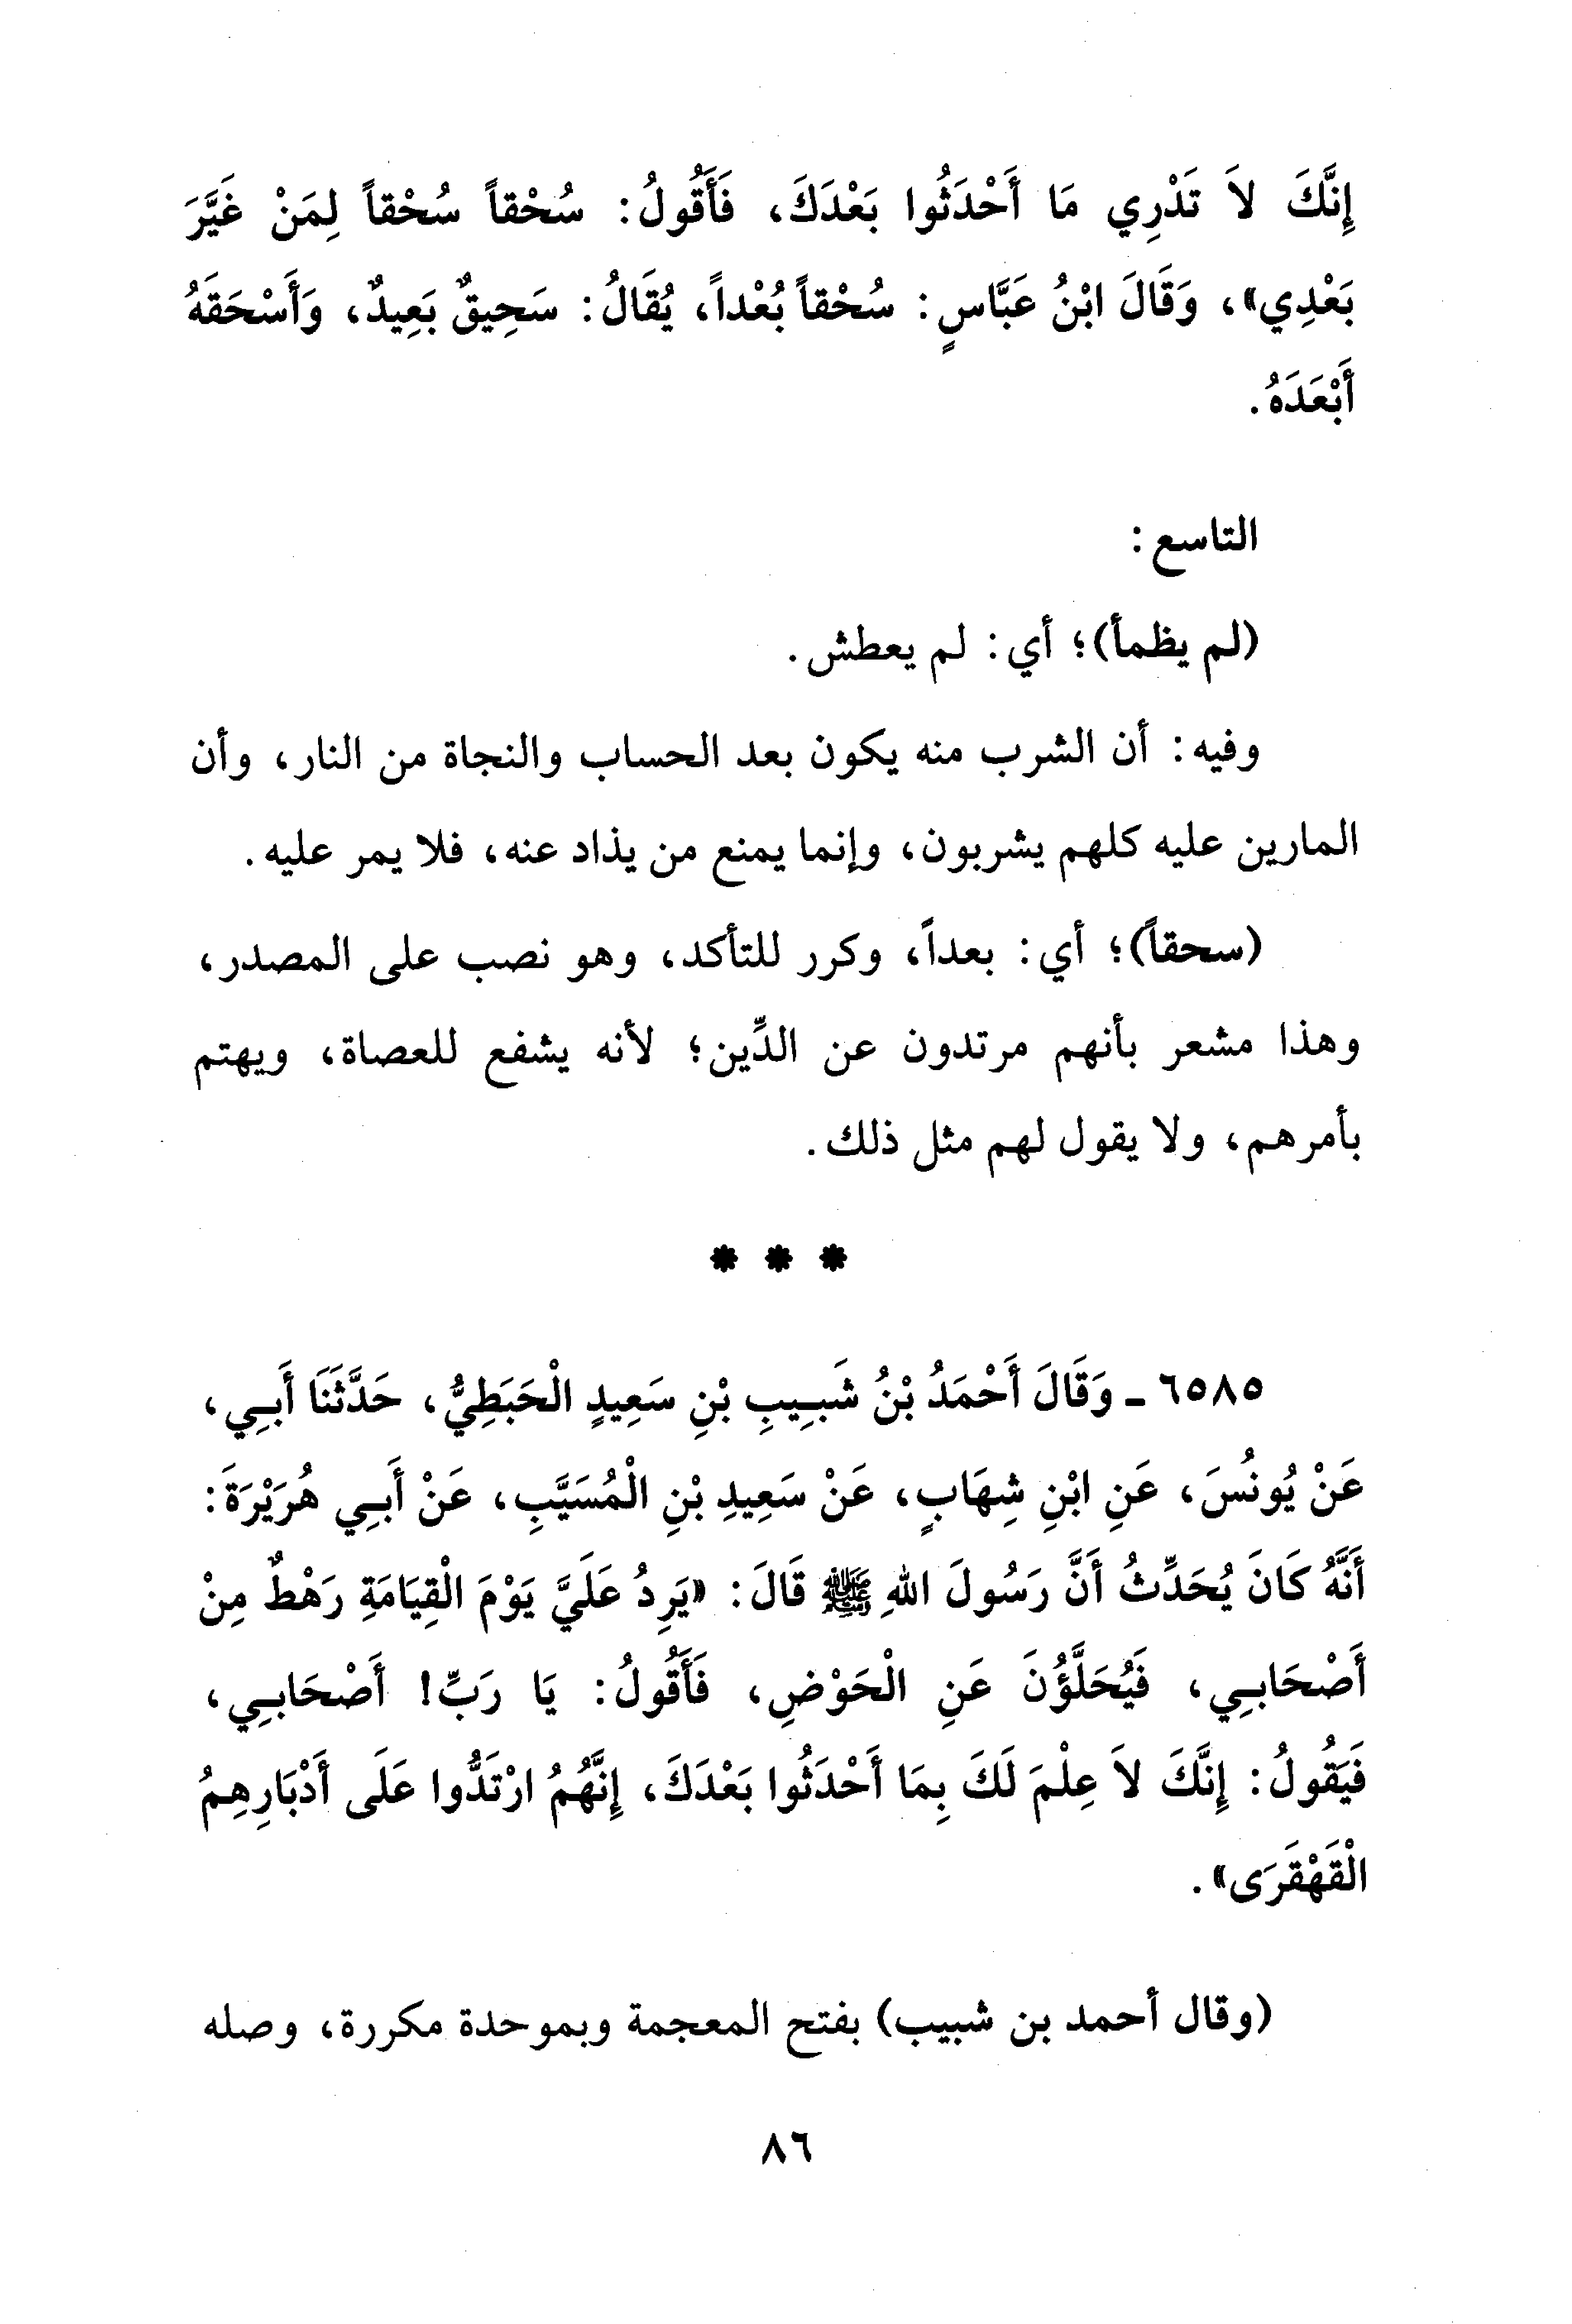 إِنَّكَ لاَ تَدْرِي مَا أَحْدَثُوا بَعْدَكَ، فَأَقُولُ: سُحْقاً سُحْقاً لِمَنْ غَيَّرَ
بَعْدِي»، وَقَالَ ابْنُ عَبَّاسٍ: سُحْقاً بُعْداً، يُقَالُ: سَحِيقٌ بَعِيدٌ، وَأَسْحَقَهُ
أَبْعَدَهُ.
التاسع:
(لم يظمأ)؛ أي: لم يعطش.
وفيه: أن الشرب منه يكون بعد الحساب والنجاة من النار، وأن
المارين عليه كلهم يشربون، وإنما يمنع من يذاد عنه، فلا يمر عليه.
(سحقاً)؛ أي: بعداً، وكرر للتأكد، وهو نصب على المصدر،
وهذا مشعر بأنهم مرتدون عن الدِّين؛ لأنه يشفع للعصاة، ويهتم
بأمرهم، ولا يقول لهم مثل ذلك.
* * *
٦٥٨٥ - وَقَالَ أَحْمَدُ بْنُ شَبِيبِ بْنِ سَعِيدٍ الْحَبَطِيُّ، حَدَّثَنَا أَبِي،
عَنْ يُونُسَ، عَنِ ابْنِ شِهَابٍ، عَنْ سَعِيدِ بْنِ الْمُسَيَّبِ، عَنْ أَبِي هُرَيْرَةَ:
أَنَّهُ كَانَ يُحَدِّثُ أَنَّ رَسُولَ اللهِ ﷺ قَالَ: «يَرِدُ عَلَيَّ يَوْمَ الْقِيَامَةِ رَهْطٌ مِنْ
أَصْحَابِي، فَيُحَلَّؤُنَ عَنِ الْحَوْضِ، فَأَقُولُ: يَا رَبِّ! أَصْحَابِي،
فَيَقُولُ: إِنَّكَ لاَ عِلْمَ لَكَ بِمَا أَحْدَثُوا بَعْدَكَ، إِنَّهُمُ ارْتَدُّوا عَلَى أَدْبَارِهِمُ
الْقَهْقَرَى».
(وقال أحمد بن شبيب) بفتح المعجمة وبموحدة مكررة، وصله
٨٦